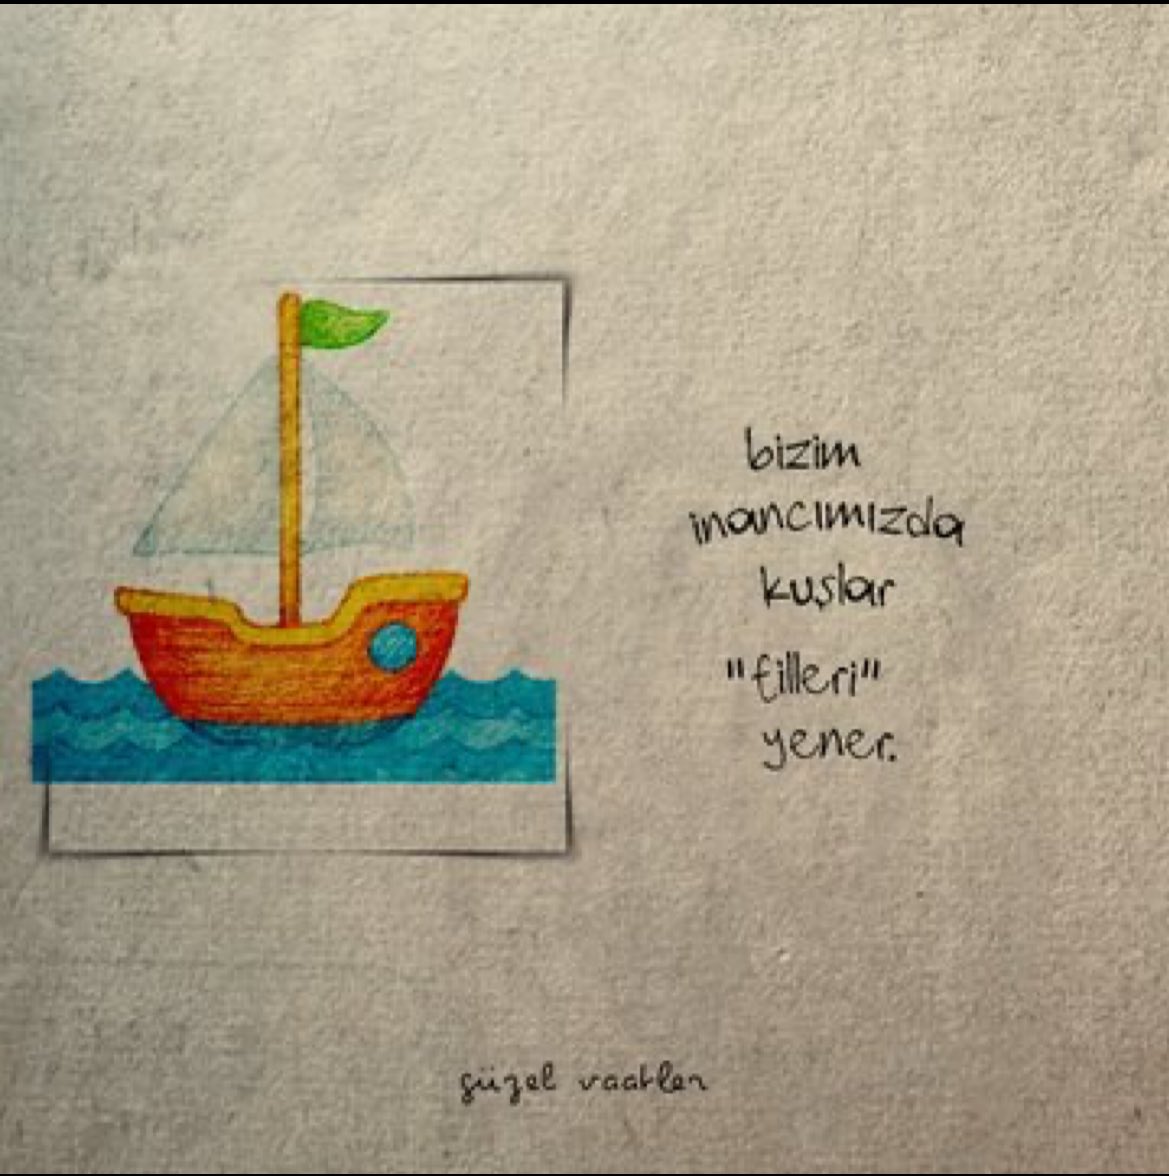 bizim
inancımızda
kuşlar
"filleri"
yener.
güzel vaatler